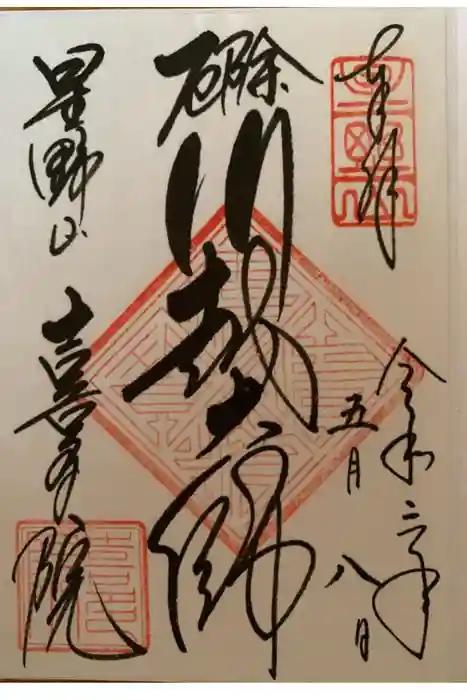 奉拝
令和二年
五月八日
厄除
川越大師
星野山 喜多院